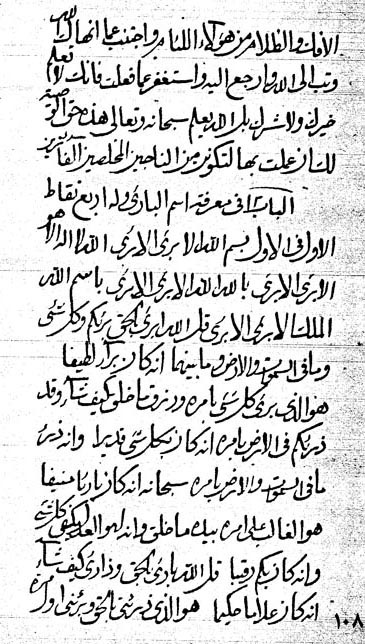 الافك والظلام من هؤلاء اللئام واجتنب عما انهاك الله
وتب الى الله وارجع اليه واستغفر عما فعلت فانك لا تعلم
خيرك ولا شرك بل الله يعلم سبحانه وتعالى هذه حق الوصية
لك ان عملت بها لتكونن من الناجين المخلصين الفائزين
الباب فى معرفة اسم البارئ وله اربع نقاط
الاول فى الاول بسم الله الابرئ الابرئ الله لا اله الا هو
الابرئ الابرئ بالله الله الابرئ الابرئ باسم الله
الملك الابرئ الابرئ قل الله ابرئ الحق بربكم وكل شئ
وما فى السموات والارض وما بينهما انه كان برآرا لطيفا
هو الذى برئ كل شئ بامره ورزق ما خلق كيف شاء وقد
ذرئكم فى الارض بامره انه كان بكل شئ قديرا وانه ذرئ
ما فى السموات والارض بامره سبحانه انه كان بارئا منيفا
هو الغالب على امره بيده ما خلق وانه لهو العلى كل شئ
وانه كان بكم رقيبا قل الله بارئ الحق وذارئ كيف شاء
انه كان علاما حكيما هو الذى ذرئنى بالحق وبرئنى اول مرة
١٠٨